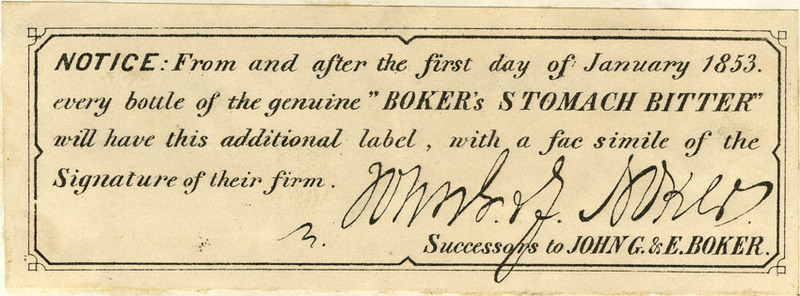 NOTICE: From and after the first day of January 1853.
every bottle of the genuine "BOKER's STOMACH BITTER"
will have this additional label, with a fac simile of the
Signature of their firm.
Successors to JOHN G. & E. BOKER.